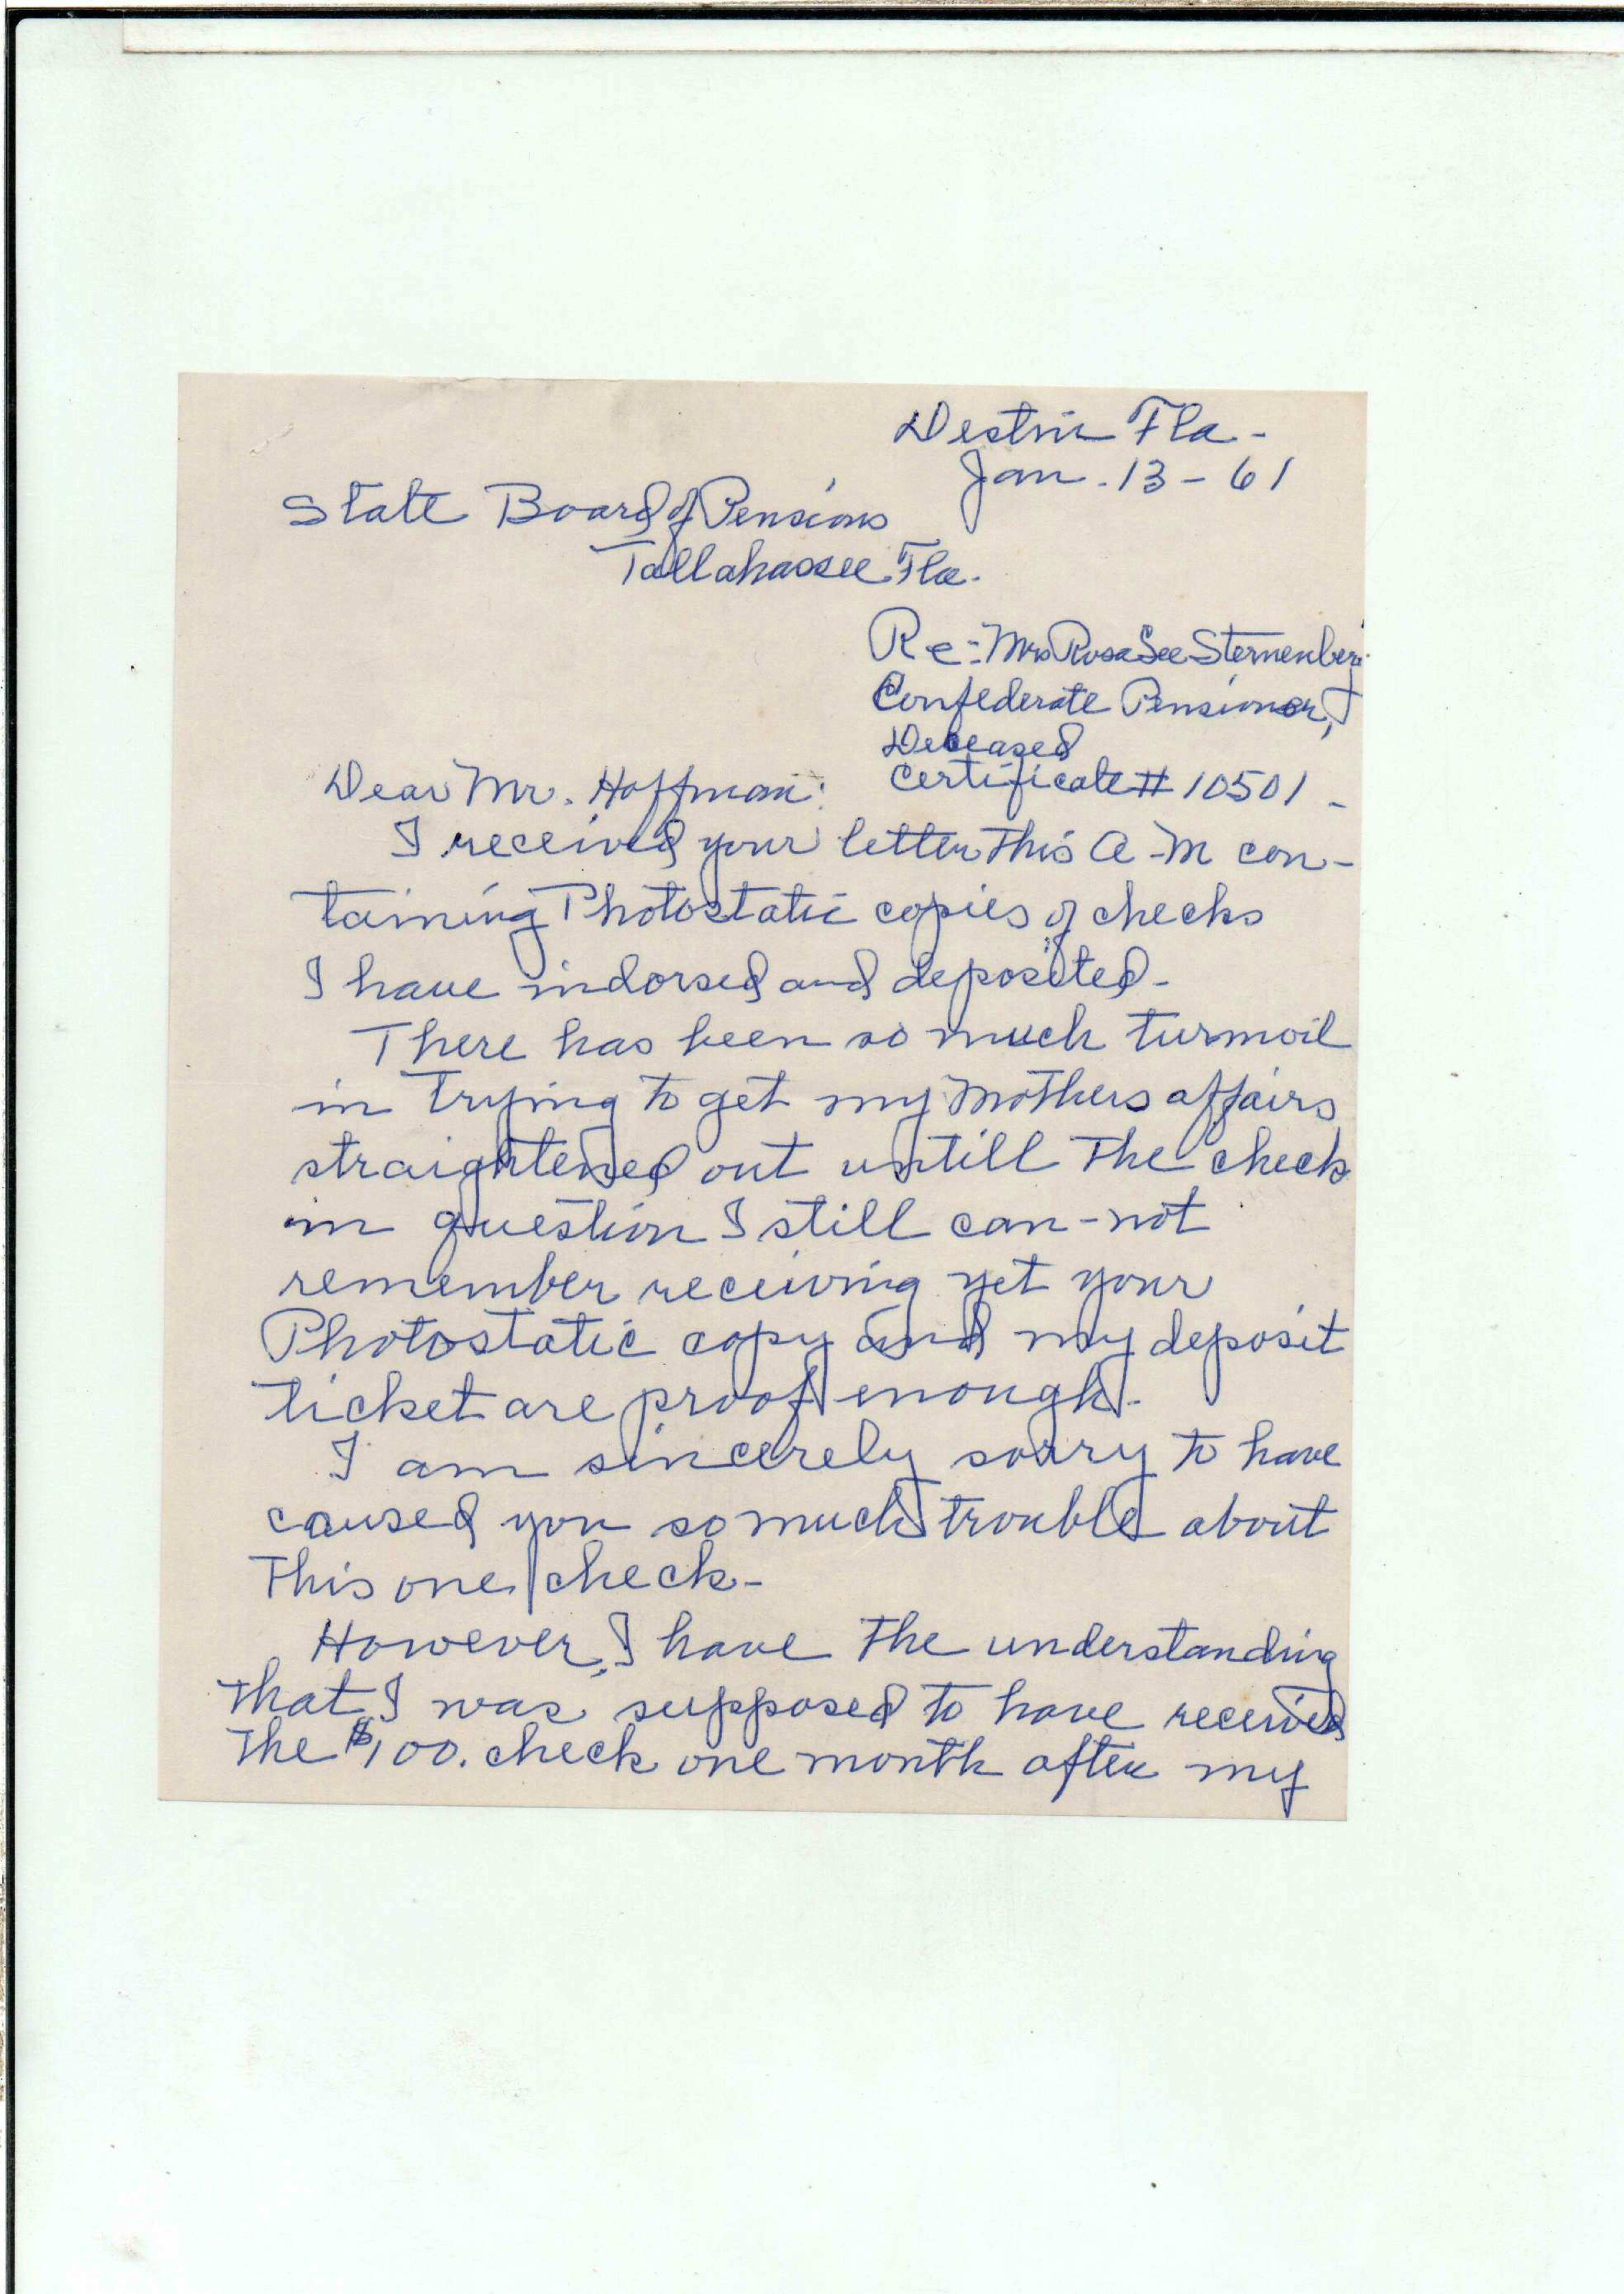 Destin Fla -
Jan. 13 - 61
State Board of Pensions
Tallahassee Fla.
Re:- Mrs Rosa See Sternenberg
Confederate Pensioner,
Deceased
Certificate # 10501 -
Dear Mr. Hoffman:
I received your letter This A-M con-
taining Photostatic copies of checks
I have indorsed and deposited -
There has been so much turmoil
in Trying to get my Mothers affairs
straightened out untill The check
in question I still can-not
remember receiving yet your
Photostatic copy and my deposit
ticket are proof enough -
I am sincerely sorry to have
caused you so much trouble about
This one check -
However, I have The understanding
That I was supposed to have received
The $100. check one month after my